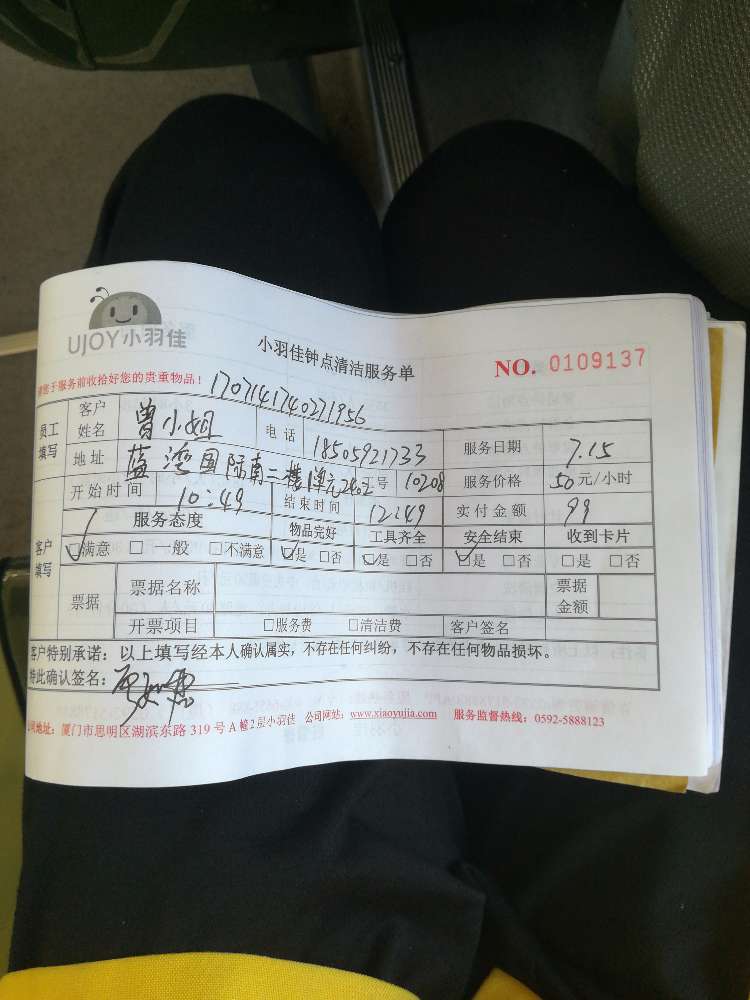 UJOY小羽佳
小羽佳钟点清洁服务单
NO. 0109137
请您于服务前收拾好您的贵重物品!
1707141740271956
员工填写
客户姓名 曾小姐 电话 18505921733 服务日期 7.15
地址 蓝湾国际南二楼1单元2402 工号 10208 服务价格 50元/小时
开始时间 10:49 结束时间 12:49 实付金额 99
客户填写
服务态度 物品完好 工具齐全 安全结束 收到卡片
☑满意 □一般 □不满意 ☑是 □否 ☑是 □否 ☑是 □否 □是 □否
票据 票据名称 票据金额
开票项目 □服务费 □清洁费 客户签名
客户特别承诺:以上填写经本人确认属实,不存在任何纠纷,不存在任何物品损坏。
特此确认签名:
公司地址:厦门市思明区湖滨东路319号A幢2层小羽佳 公司网站:www.xiaoyujia.com 服务监督热线:0592-5888123